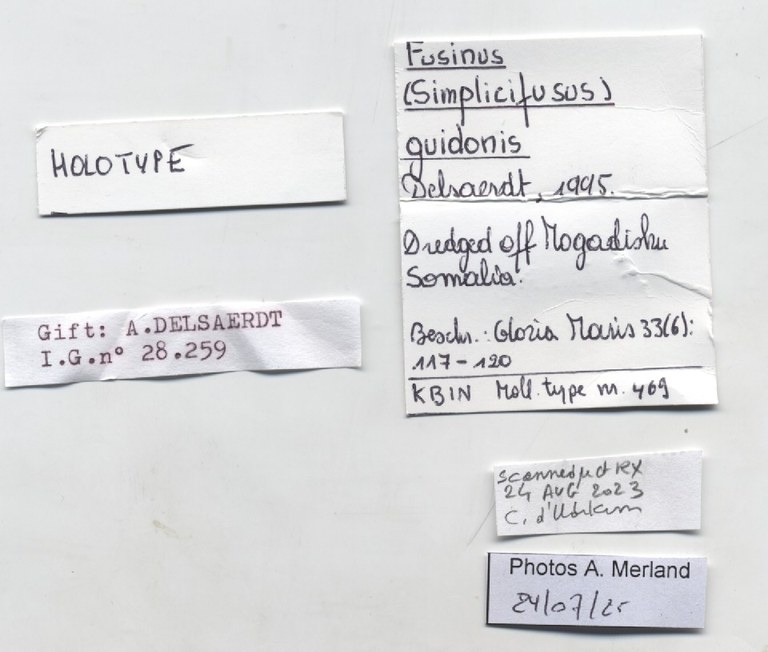 HOLOTYPE
Gift: A.DELSAERDT
I.G.n° 28.259
Fusinus
(Simplicifusus)
guidonis
Delsaerdt, 1995.
Dredged off Mogadishu
Somalia.
Beschr.: Gloria Maris 33(6):
117-120
KBIN Moll. type nr. 469
scanned
24 AUG 2023
Photos A. Merland
24/07/25